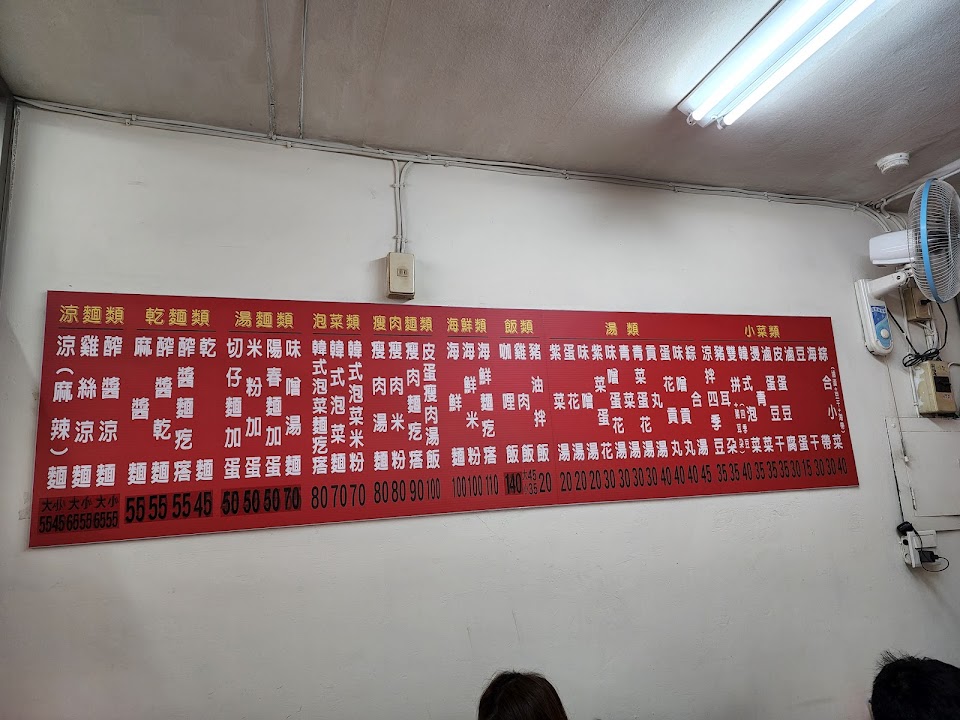 涼麵類
涼(麻辣)麵 大55小45
雞絲涼麵 大65小55
醡醬涼麵 大65小55
乾麵類
麻醬麵 55
醡醬乾麵 55
醡醬麵疙瘩 55
乾麵 45
湯麵類
切仔麵加蛋 50
米粉加蛋 50
陽春麵加蛋 50
味噌湯麵 70
泡菜類
韓式泡菜麵疙瘩 80
韓式泡菜麵 70
韓式泡菜米粉 70
瘦肉麵類
瘦肉湯麵 80
瘦肉米粉 80
瘦肉麵疙瘩 90
皮蛋瘦肉湯飯 100
海鮮類
海鮮麵 100
海鮮米粉 100
海鮮麵疙瘩 110
飯類
咖哩飯 140
雞肉飯 大45小35
豬油拌飯 20
湯類
紫菜湯 20
蛋花湯 20
味噌湯 20
紫菜蛋花 30
味噌蛋花湯 30
青菜湯 30
青菜蛋花湯 30
貢丸湯 40
蛋花貢丸 40
味噌貢丸 40
綜合湯 45
小菜類
涼拌四季豆 35
豬耳朵 35
雙拼 35
韓式泡菜 35
燙青菜 35
滷蛋豆干 30
皮蛋豆腐 30
滷蛋 15
豆干 30
海帶 30
綜合小菜 40